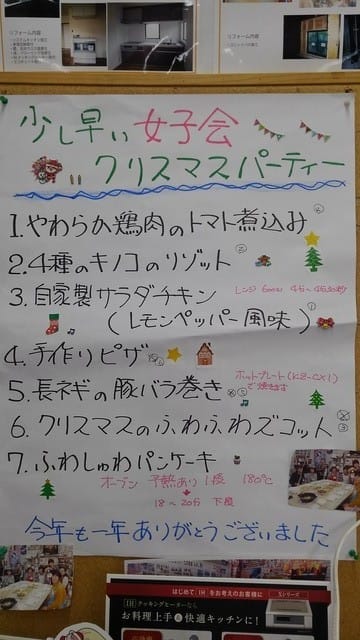 リフォーム内容
リフォーム内容
少し早い女子会
クリスマスパーティー
1.やわらか鶏肉のトマト煮込み
2.4種のキノコのリゾット
3.自家製サラダチキン
レンジ 600W 4分〜4分30秒
(レモンペッパー風味)
4.手作りピザ
5.長ネギの豚バラ巻き
ホットプレート(KZ-CX1)
で焼きます
6.クリスマスのふわふわズコット
7.ふわしゅわパンケーキ
オーブン 予熱あり1段 180℃
18〜20分 下段
今年も一年ありがとうございました
はじめて IH をお考えのお客様に
IHクッキングヒーターなら
お料理上手&快適キッチンに!